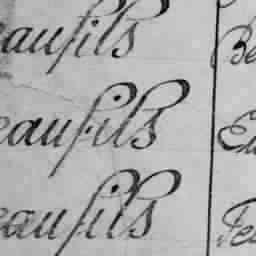 eaufils Be
eaufils Eu
eaufils Fe